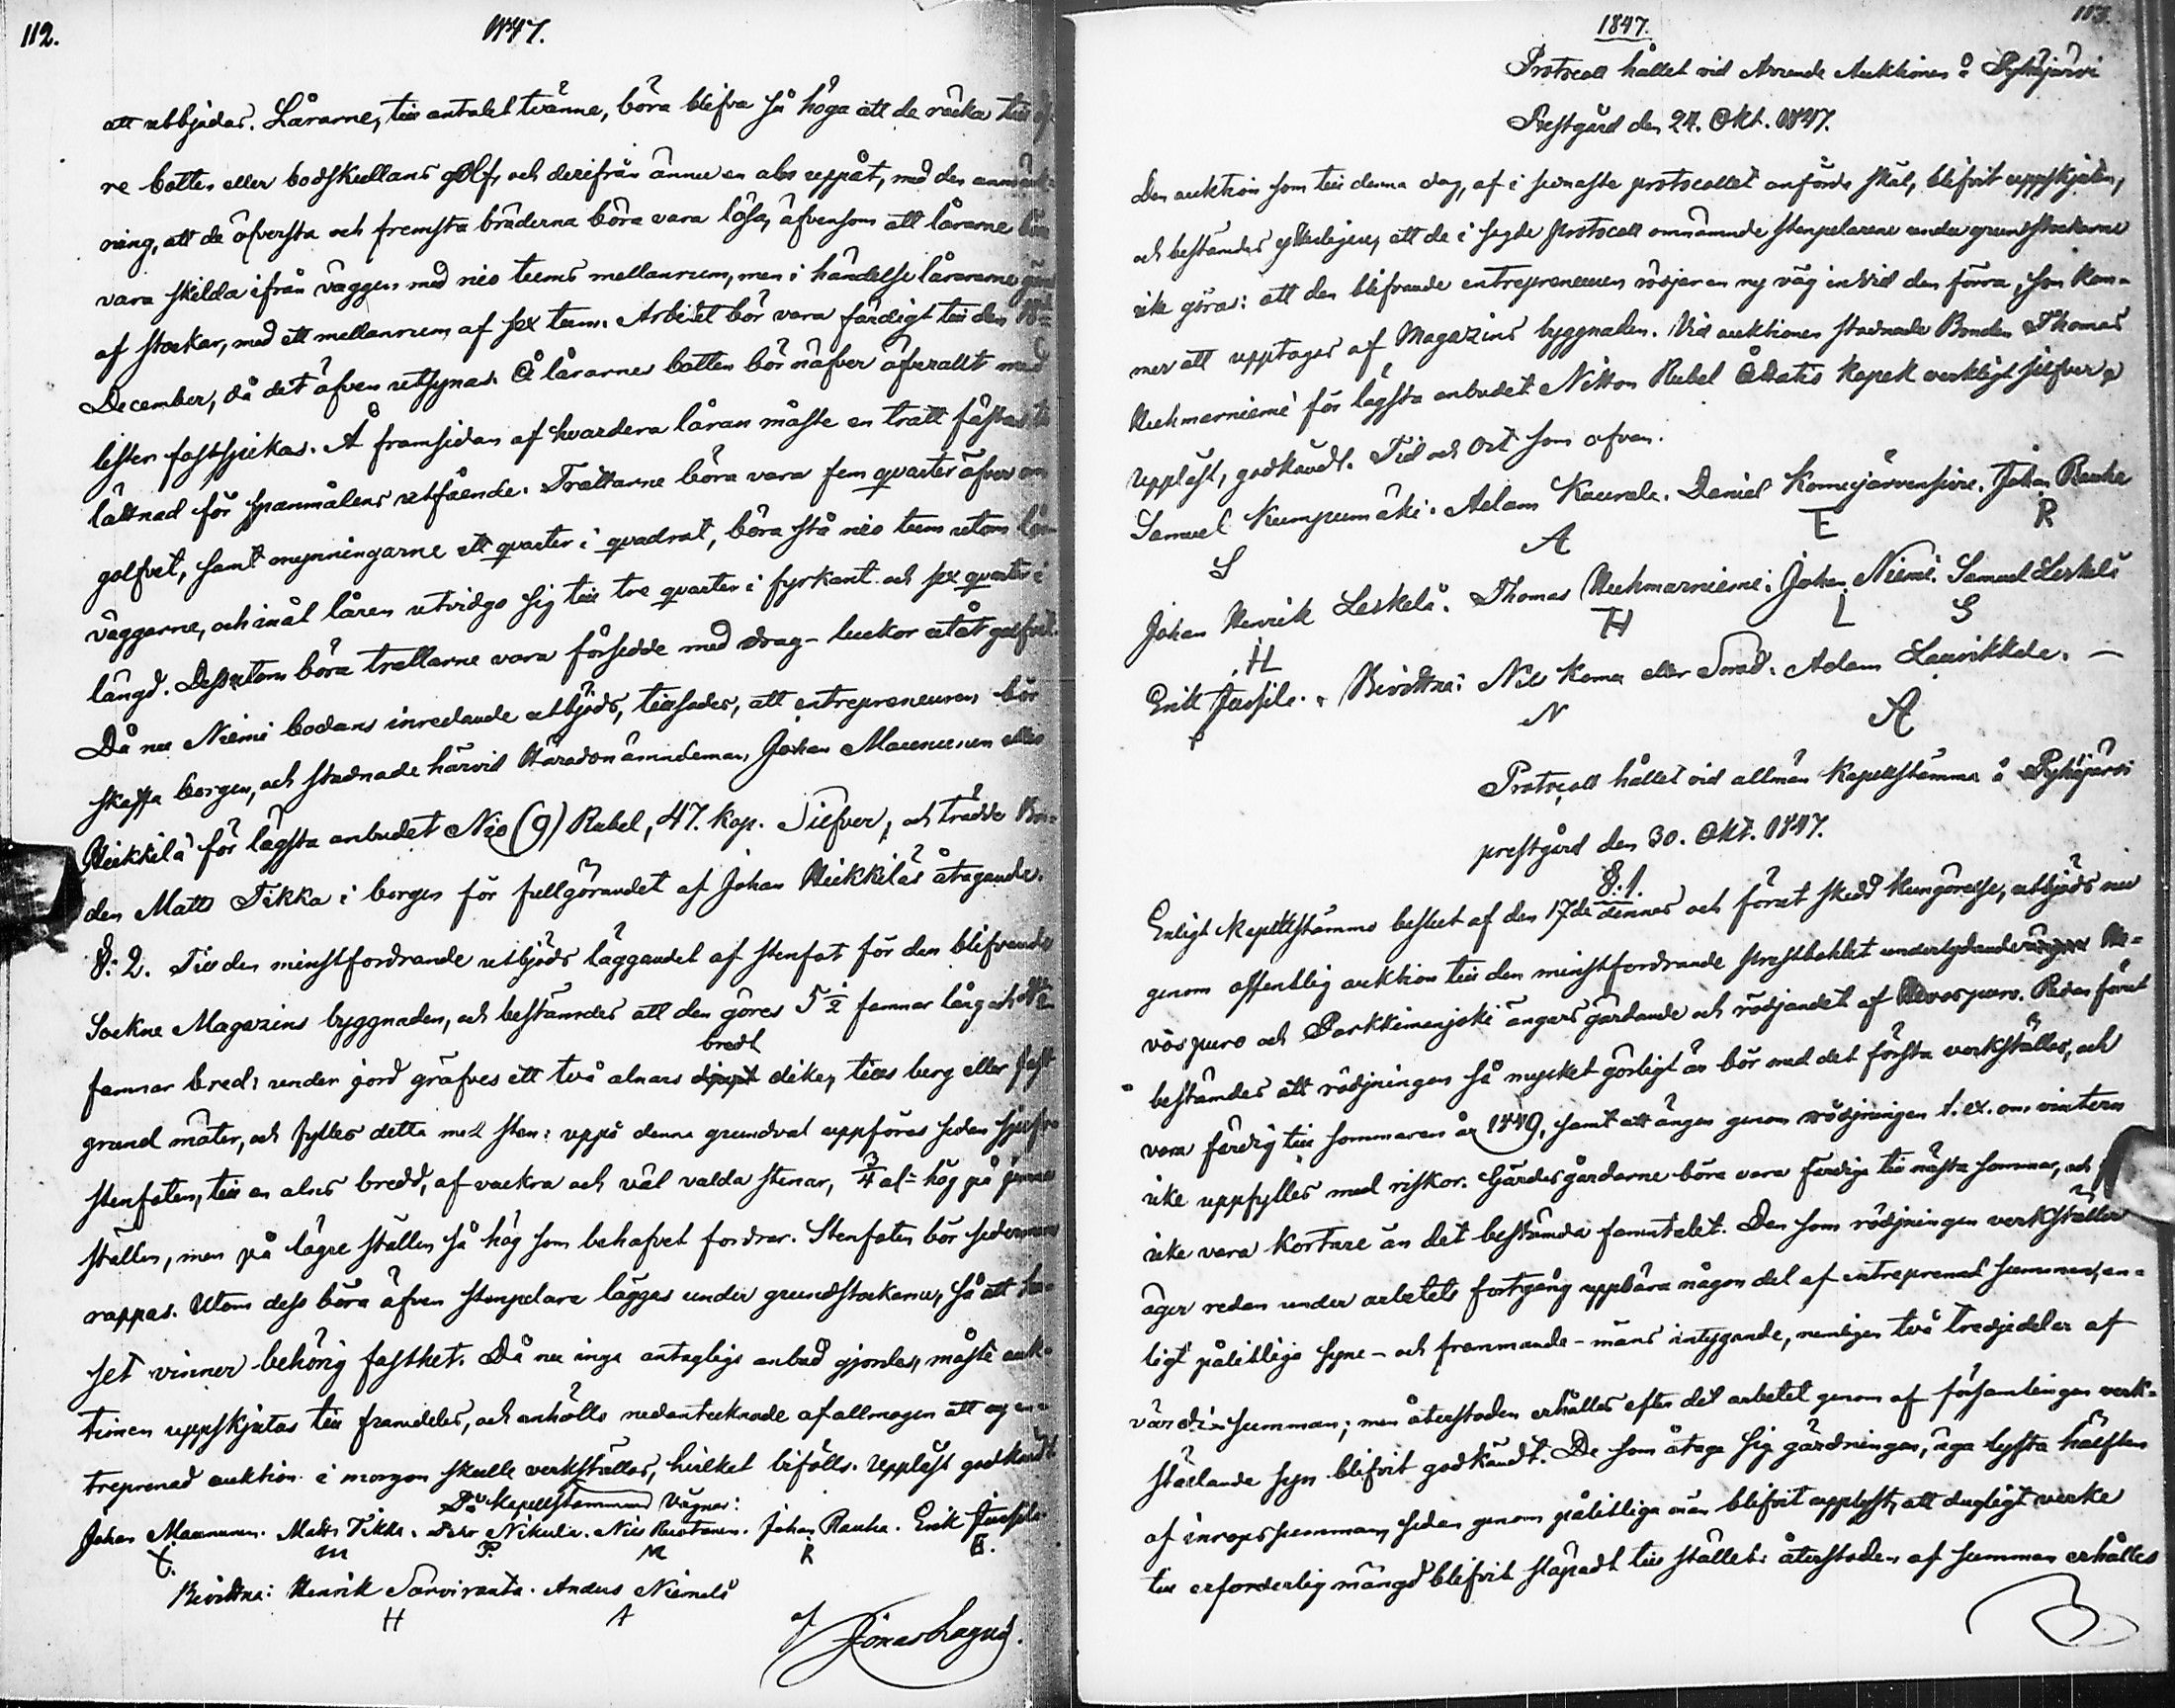 112.
1847.
att utbjudas. Lårarne, till antalet tvänne, böra blifva så höga att de räcka till öf-
re botten eller bodskullans golf, och derifrån ännu en aln uppåt, med den anmärk-
ning, att de öfversta och fremsta bräderna böra vara lösa, äfvensom att lårarne böra
vara skilda ifrån väggen med nio tums mellanrum, men i händelse lårarne göras
af stockar, med ett mellanrum af sex tum. Arbetet bör vara färdigt till den
December, då det äfven utsynas. Å lårarnes botten bör näfver öfverallt med
lister fastspikas. Å framsidan af hvardera låran måste en tratt fästas till
lättnad för spanmålens utfående. Trattarne böra vara fem quarter öfver om
golfvet, samt mynningarne ett quarter i quadrat, böra stå nio tum utom lår-
väggarne, och inåt låren utvidga sig till tre quarter i fyrkant och sex quarter i
längd. Dessutom böra trattarne vara försedde med drag-luckor utåt golfvet.
Då nu Niemi bodans inredande utbjöds, tillsades, att entrepreneuren bör
skaffa borgen, och stadnade härvid Häradsnämndeman Johan Maununen eller
Heikkilä för lägsta anbudet Nio (9) Rubel, 47. kop. Silfver, och trädde Bon-
den Matts Tikka i borgen för fullgörandet af Johan Heikkiläs åtagande.
§: 2. Till den minstfordrande utbjöds läggandet af stenfot för den blifvande
Sockne Magazins byggnaden, och bestämdes att den göres 5½ famnar lång och
bredt
famnar bred: under jord gräfves ett två alnars djupt dike, tills berg eller fast
grund möter, och fylles detta med sten: uppå denna grundval uppföres sedan sjelfva
stenfoten, till en alns bredd, af vackra och väl valda stenar, ¾ aln hög på jemna
ställen, men på lägre ställen så hög som behofvet fordrar. Stenfoten bör sedermera
rappas. Utom dess böra äfven stenpelare läggas under grundstockarne, så att hu-
set vinner behörig fasthet. Då nu inga antagliga anbud gjordes, måste auk-
tionen uppskjutas till framdeles, och anhölls nedantecknade af allmogen att ny en-
treprenad auktion i morgon skulle verkställas, hvilket bifölls. Uppläst godkändt
På Kapellstämmans vägnar:
Johan Maununen. Matts Tikka. Pehr Nikula. Nils Ruotanen. Johan Rauha. Erik Jussila.
M P. N R E.
Bevittna: Henrik Sarviranta. Anders Niemelä
H A
af Jonas Lagus.
1847.
113.
Protocoll hållet vid Arrende Auktionen å Pyhäjärvi
Prestgård den 24. Okt. 1847.
Den auktion som till denna dag, af i senaste protocollet anförde skäl, blifvit uppskjuten,
och bestämdes ytterligare, att de i sagde Protocoll omnämnde stenpelarene under grundstockarne
icke göras: att den blifvande entrepreneuren rödjer en ny väg invid den förra, som kom-
mer att upptages af Magazins byggnaden. Vid auktionen stadnade Bonden Thomas
Huhmarniemi för lägsta anbudet Nitton Rubel Åttatio kopek verkligt silfver.
Uppläst, godkändt. Tid och Ort som ofvan.
Samuel Kumpumäki. Adam Kaurala. Daniel Komujärvensivu. Johan Rauha
S A E R
Johan Henrik Leskelä. Thomas Huhmarniemi. Johan Niemi. Samuel Leskelä
H H L S
Erik Jussila. Bevittna: Nils Koma eller Smed. Adam Laurikkala. —
N A
Protocoll hållet vid allmän Kapellstämma å Pyhäjärvi
prestgård den 30. Okt. 1847.
§. 1.
Enligt Kapellstämmo beslut af den 17de dennes och förut skedd kungörelse, utbjöds nu
genom offentlig auktion till den minstfordrande Prestbohlet underlydande ängar He-
vospuro och Parkkimanjoki ängars gärdande och rödjandet af Hevospuro. Redan förut
bestämdes att rödjningen så mycket görligt är bör med det första verkställas, och
vara färdig till sommaren år 1849, samt att ängen genom rödjningen t. ex. om vintern
icke uppfylles med riskor. Gärdesgårdarne böra vara färdige till nästa sommar, och
icke vara kortare än det bestämda famntalet. Den som rödjningen verkställer
äger redan under arbetets fortgång uppbära någon del af entreprenad summan, en-
ligt pålitliga syne- och frammande-mäns intygande, nemligen två tredjedelar af
värdi-summan; men återstoden erhålles efter det arbetet genom af församlingen verk-
ställande syn blifvit godkändt. De som åtaga sig gärdningen, äga lyfta hälften
af inrops summan, sedan genom pålitliga män blifvit upplyst, att dugligt virke
till erforderlig mängd blifvit släpadt till stället: återstoden af summan erhålles